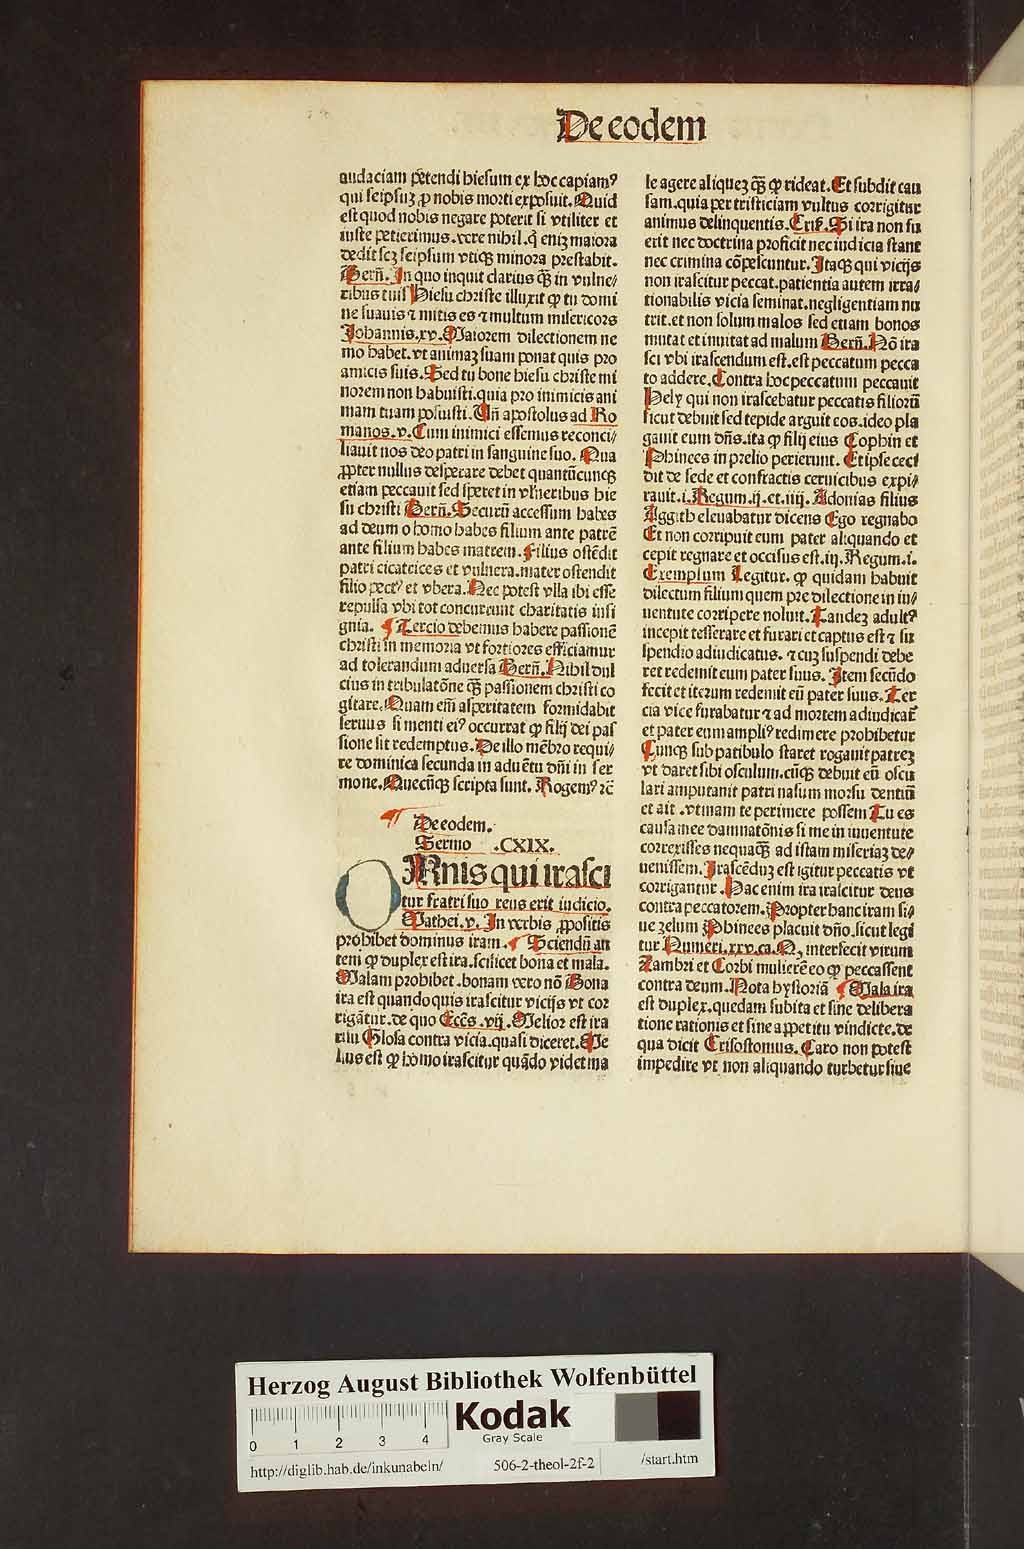 De eodem
audaciam petendi hiesum ex hoc capiamꝰ
qui seipsuꝫ ꝓ nobis morti exposuit. Quid
est quod nobis negare poterit si vtiliter et
iuste petierimus. vere nihil. qꝛ eniꝫ maiora
dedit scꝫ seipsum vtiqꝫ minora prestabit.
Berñ. In quo inquit clarius qꝫ in vulne/
ribus tuis Hiesu christe illuxit ꝙ tu domi
ne suauis ⁊ mitis es ⁊ multum misericors
Johannis.xv. Maiorem dilectionem ne
mo habet. vt animaꝫ suam ponat quis pro
amicis suis. Sed tu bone hiesu christe mi
norem non habuisti. quia pro inimicis ani
mam tuam posuisti. Uñ apostolus ad Ro
manos.v. Cum inimici essemus reconci/
liauit nos deo patri in sanguine suo. Qua
ꝓpter nullus desperare debet quantūcunqꝫ
etiam peccauit sed speret in vlneribus hie
su christi Berñ. Securū accessum habes
ad deum o homo habes filium ante patrē
ante filium habes matrem. Filius ostēdit
patri cicatrices et vulnera. mater ostendit
filio pectꝰ et vbera. Nec potest vlla ibi esse
repulsa vbi tot concurrunt charitatis insi
gnia. ¶ Tercio debemus habere passionē
christi in memoria vt fortiores efficiamur
ad tolerandum aduersa Berñ. Nihil dul
cius in tribulatōne qꝫ passionem christi co
gitare. Quam em̄ asperitatem formidabit
seruus si menti eiꝰ occurrat ꝙ filij dei pas
sione sit redemptus. De illo mēbro requi/
re dominica secunda in aduētu dñi in ser
mone. Quecūqꝫ scripta sunt. Rogemꝰ ⁊c̄
¶ De eodem.
Sermo .CXIX.
OMnis qui irasci
tur fratri suo reus erit iudicio.
Mathei.v. In verbis ꝓpositis
prohibet dominus iram. ¶ Sciendū an
tem ꝙ duplex est ira. scilicet bona et mala.
Malam prohibet. bonam vero nō Bona
ira est quando quis irascitur vicijs vt cor
rigātur. de quo Eccēs. vij. Melior est ira
risu Glosa contra vicia. quasi diceret. Me
lius est ꝙ homo irascitur quādo videt ma
le agere aliqueꝫ qꝫ ꝙ rideat. Et subdit cau
sam. quia per tristiciam vultus corrigitur
animus delinquentis. Cris. Si ira non fu
erit nec doctrina proficit nec iudicia stant
nec crimina cōpescuntur. Itaqꝫ qui vicijs
non irascitur peccat. patientia autem irra/
tionabilis vicia seminat. negligentiam nu
trit. et non solum malos sed etiam bonos
mutat et inuitat ad malum Berñ. Nō ira
sci vbi irascendum est. est peccatum pecca
to addere. Contra hoc peccatum peccauit
Hely qui non irascebatur peccatis filiorū
sicut debuit sed tepide arguit eos. ideo pla
gauit eum dñs. ita ꝙ filij eius Cophin et
Phinees in prelio perierunt. Et ipse ceci
dit de sede et confractis ceruicibus expi/
rauit. i. Regum. ij. et. iiij. Adonias filius
Aggith eleuabatur dicens Ego regnabo
Et non corripuit eum pater aliquando et
cepit regnare et occisus est. iij. Regum. i.
Exemplum Legitur. ꝙ quidam habuit
dilectum filium quem pre dilectione in iu/
uentute corripere noluit. Tandeꝫ adultꝰ
incepit tesserare et furari et captus est ⁊ su
spendio adiudicatus. ⁊ cuꝫ suspendi debe
ret redemit eum pater suus. Item secūdo
fecit et iterum redemit eū pater suus. Ter
cia vice furabatur ⁊ ad mortem adiudicat̄
et pater eum ampliꝰ redimere prohibetur
Cunqꝫ sub patibulo staret rogauit patreꝫ
vt daret sibi osculum. cūqꝫ debuit eū oscu
lari amputauit patri nasum morsu dentiū
et ait . vtinam te perimere possem Tu es
causa mee damnatōnis si me in iuuentute
correxisses nequaqꝫ ad istam miseriaꝫ de/
uenissem. Irascēdūꝫ est igitur peccatis vt
corrigantur. Hac enim ira irascitur deus
contra peccatorem. Propter hanc iram si/
ue zelum Phinees placuit dño. sicut legi
tur Numeri.xxv.ca.N, interfecit virum
Zambri et Corbi mulierē eo ꝙ peccassent
contra deum. Nota hystoriā ¶ Mala ira
est duplex. quedam subita et sine delibera
tione rationis et sine appetitu vindicte. de
qua dicit Crisostomus. Caro non potest
impedire vt non aliquando turbetur siue
Herzog August Bibliothek Wolfenbüttel
Kodak
Gray Scale
0 1 2 3 4
http://diglib.hab.de/inkunabeln/ 506-2-theol-2f-2 /start.htm